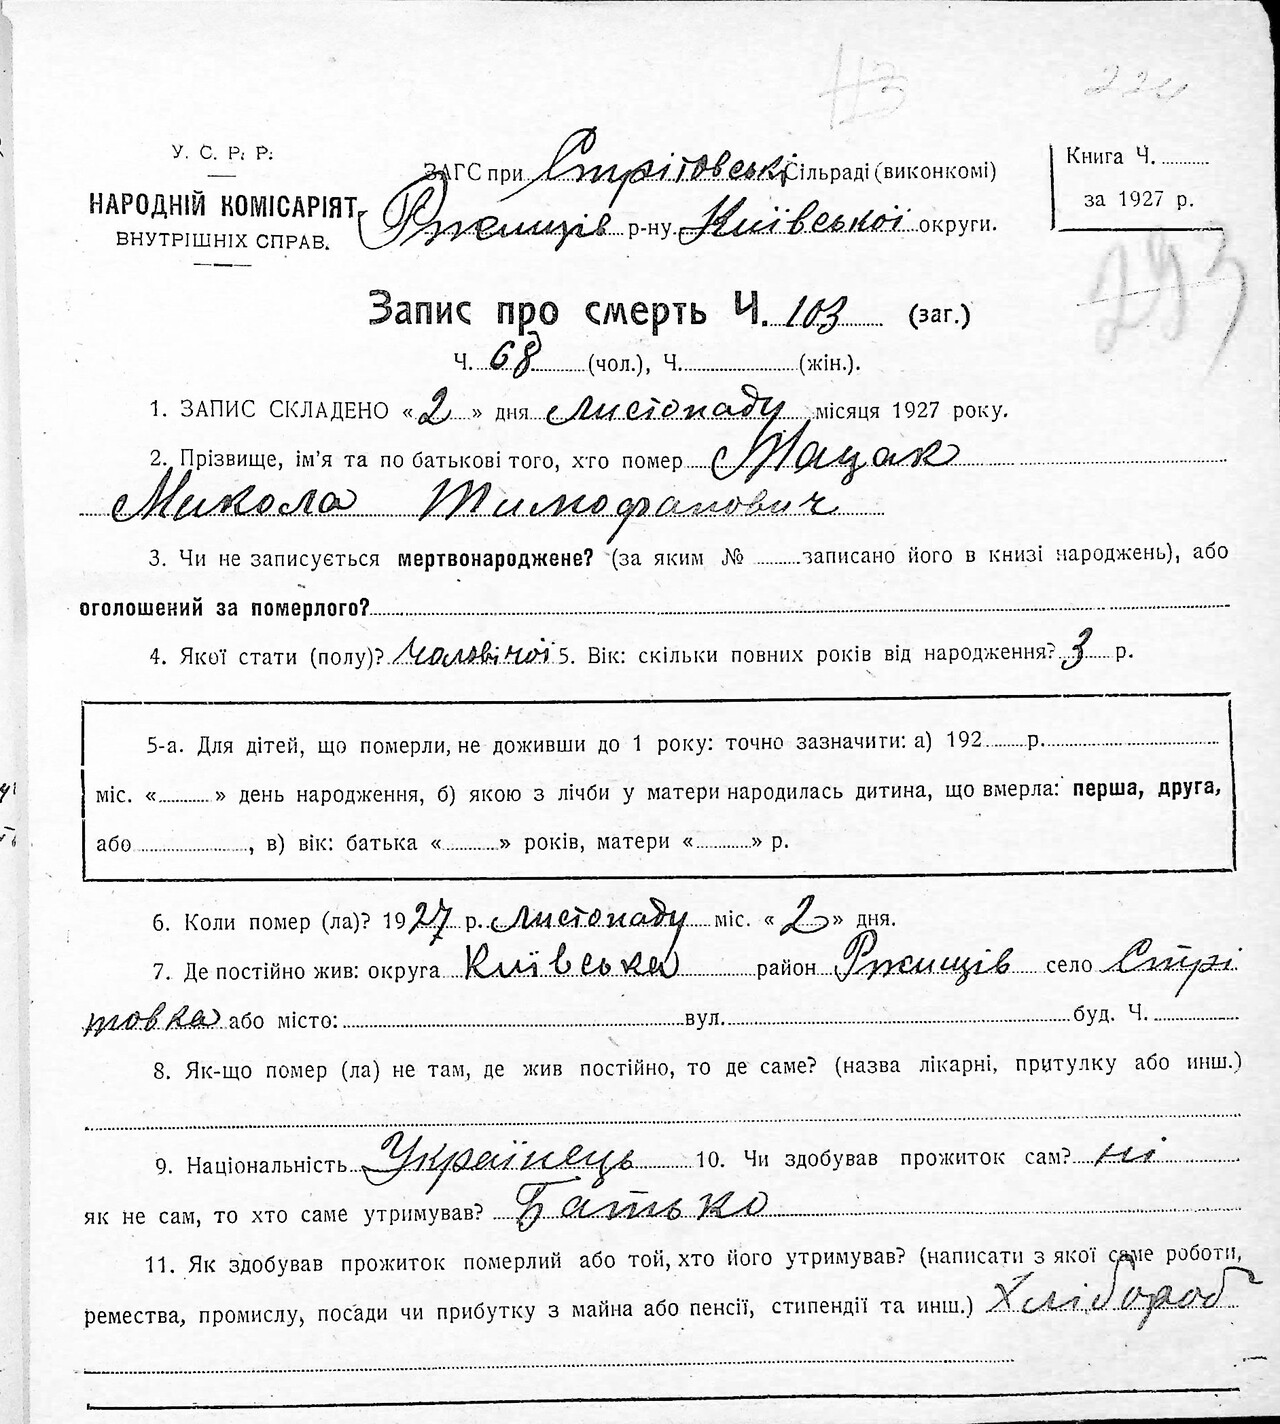 224
У. С. Р. Р.
НАРОДНІЙ КОМІСАРІЯТ
ВНУТРІШНІХ СПРАВ.
ЗАГС при Стрітовські Сільраді (виконкомі)
Ржищів р-ну Київської округи.
Книга Ч.
за 1927 р.
293
Запис про смерть Ч. 103 (заг.)
Ч. 68 (чол.), Ч. (жін.).
1. ЗАПИС СКЛАДЕНО « 2 » дня Листопаду місяця 1927 року.
2. Прізвище, ім'я та по батькові того, хто помер Мацак
Микола Тимофайович
3. Чи не записується мертвонароджене? (за яким № записано його в книзі народжень), або
оголошений за померлого?
4. Якої стати (полу)? Чоловічої 5. Вік: скільки повних років від народження? 3 р.
5-а. Для дітей, що померли, не доживши до 1 року: точно зазначити: а) 192 р.
міс. « » день народження, б) якою з лічби у матери народилась дитина, що вмерла: перша, друга,
або , в) вік: батька « » років, матери « » р.
6. Коли помер (ла)? 1927 р. Листопаду міс. « 2 » дня.
7. Де постійно жив: округа Київська район Ржищів село Стрі
товка або місто: вул. буд. Ч.
8. Як-що помер (ла) не там, де жив постійно, то де саме? (назва лікарні, притулку або инш.)
9. Національність Українець 10. Чи здобував прожиток сам? ні
як не сам, то хто саме утримував? Батько
11. Як здобував прожиток померлий або той, хто його утримував? (написати з якої саме роботи,
ремества, промислу, посади чи прибутку з майна або пенсії, стипендії та инш.) Хлібороб